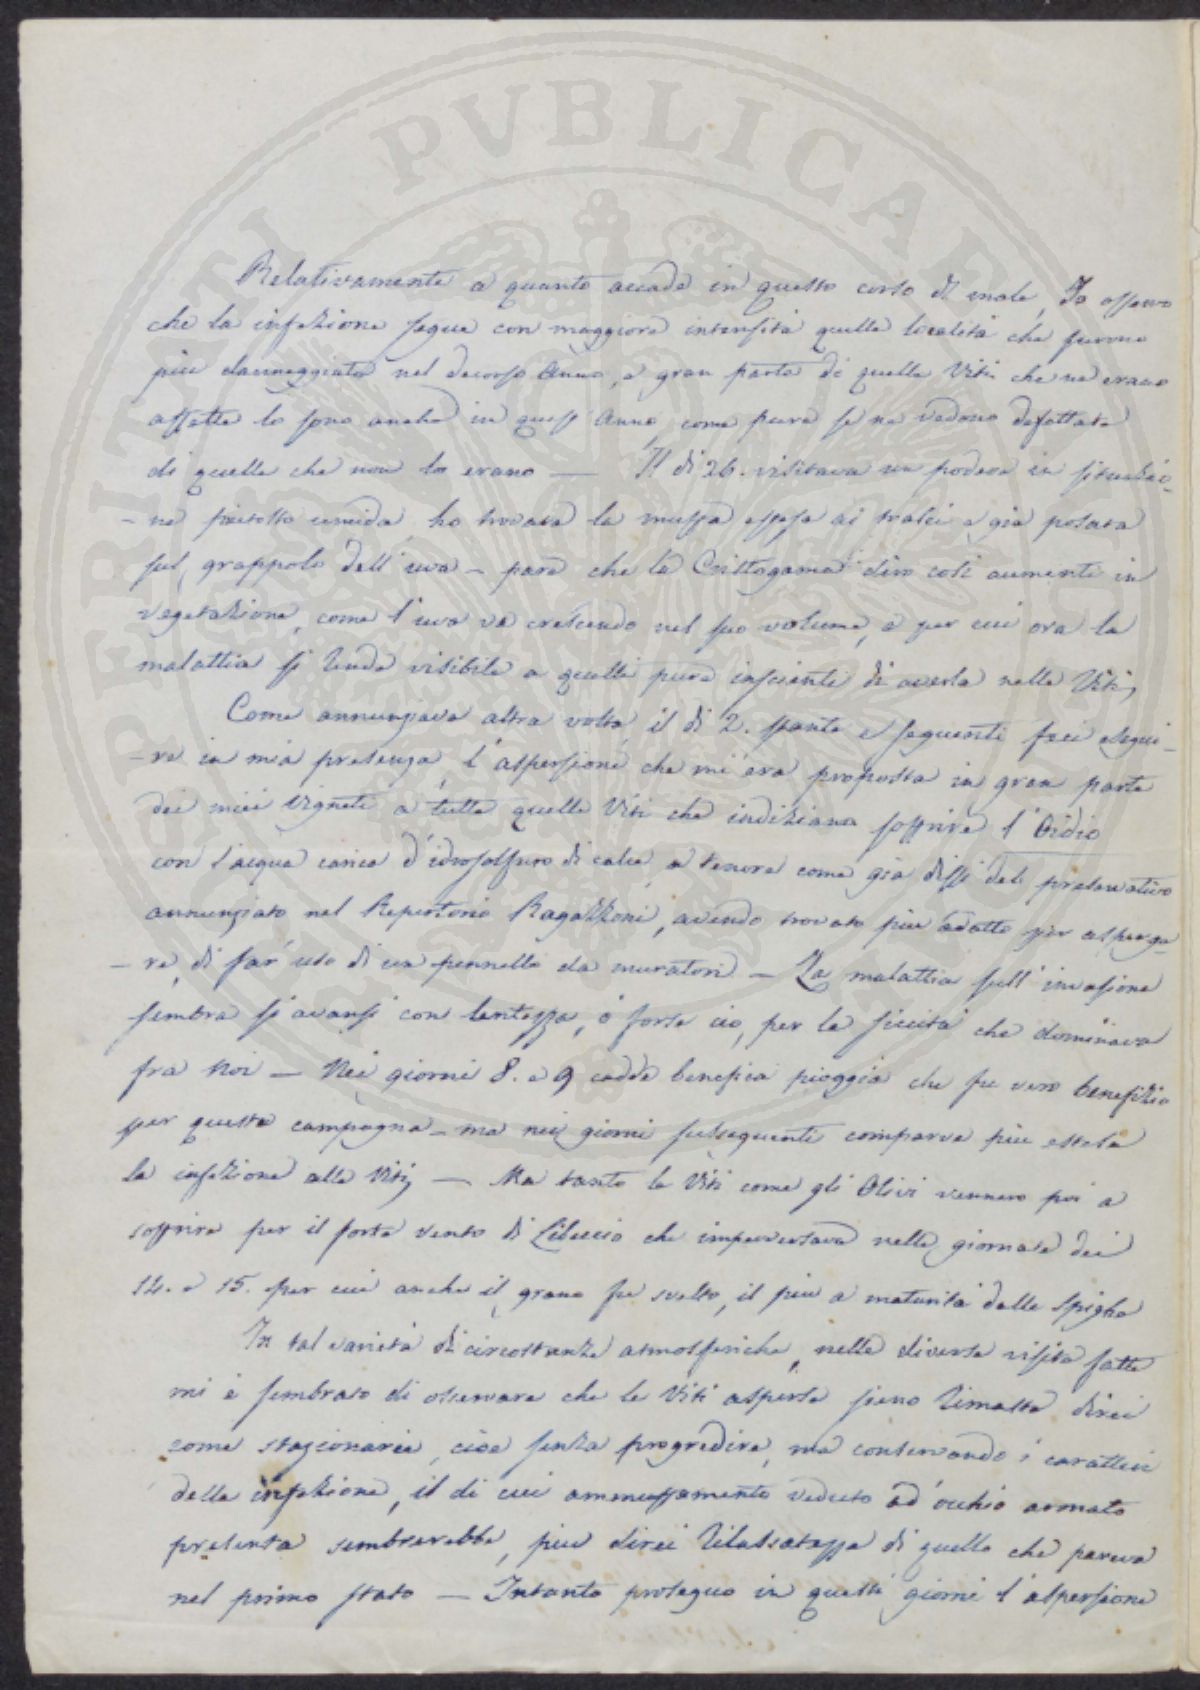 Relativamente a quanto accade in questo corso di male, Io osservo
che la infezione segue con maggiore intensità quelle località che furono
piu danneggiate nel decorso Anno, e gran parte di quelle Viti che ne erano
affette lo sono anche in quest' Anno, come pure se ne vedono infettate
di quelle che non lo erano — Il di 26. visitava un podere in situazio-
-ne piutosto umida, ho trovata la muffa estesa ai tralci e già posata
sul grappolo dell'uva — pare che la Crittogama dirò così aumenti in
vegetazione, come l'uva va crescendo nel suo volume, e per cui ora la
malattia si rende visibile a quelli pure inscienti di averla nelle Viti,
Come annunziava altra volta il di 2. stante e seguenti feci esegui-
-re in mia presenza, l'aspersione che mi era proposta in gran parte
dei miei vigneti a tutte quelle Viti che indiziano soffrire l'Oidio
con l'acqua carica d'idrosolfuro di calce, a tenore come già dissi del preservativo
annunziato nel Repertorio Ragazzoni, avendo trovato piu adatto per asperge-
-re, di far' uso di un pennello da muratori — La malattia sull' invasione
sembra si avansi con lentezza, e forse ciò, per la siccità che dominava
fra Noi — Nei giorni 8. e 9 cadde benefica pioggia che fu vero benefizio
per questa campagna — ma nei giorni susseguenti comparve piu estesa
la infezione alle Viti, — Ma tanto le Viti come gli Olivi vennero poi a
soffrire per il forte vento di Libeccio che imperversava nelle giornate dei
14. e 15. per cui anche il grano fu svelto, il piu a maturità dalle Spighe
In tal varietà di circostanze atmosferiche, nelle diverse visite fatte
mi è sembrato di osservare che le Viti asperse sieno rimaste direi
come stazionarie, cioè senza progredire, ma conservando i caratteri
della infezione, il di cui ammuffamento veduto ad' occhio armato
presenta sembrerebbe, piu direi rilassatezza di quello che pareva
nel primo stato — Intanto proseguo in questi giorni l'aspersione
PVBLICAE